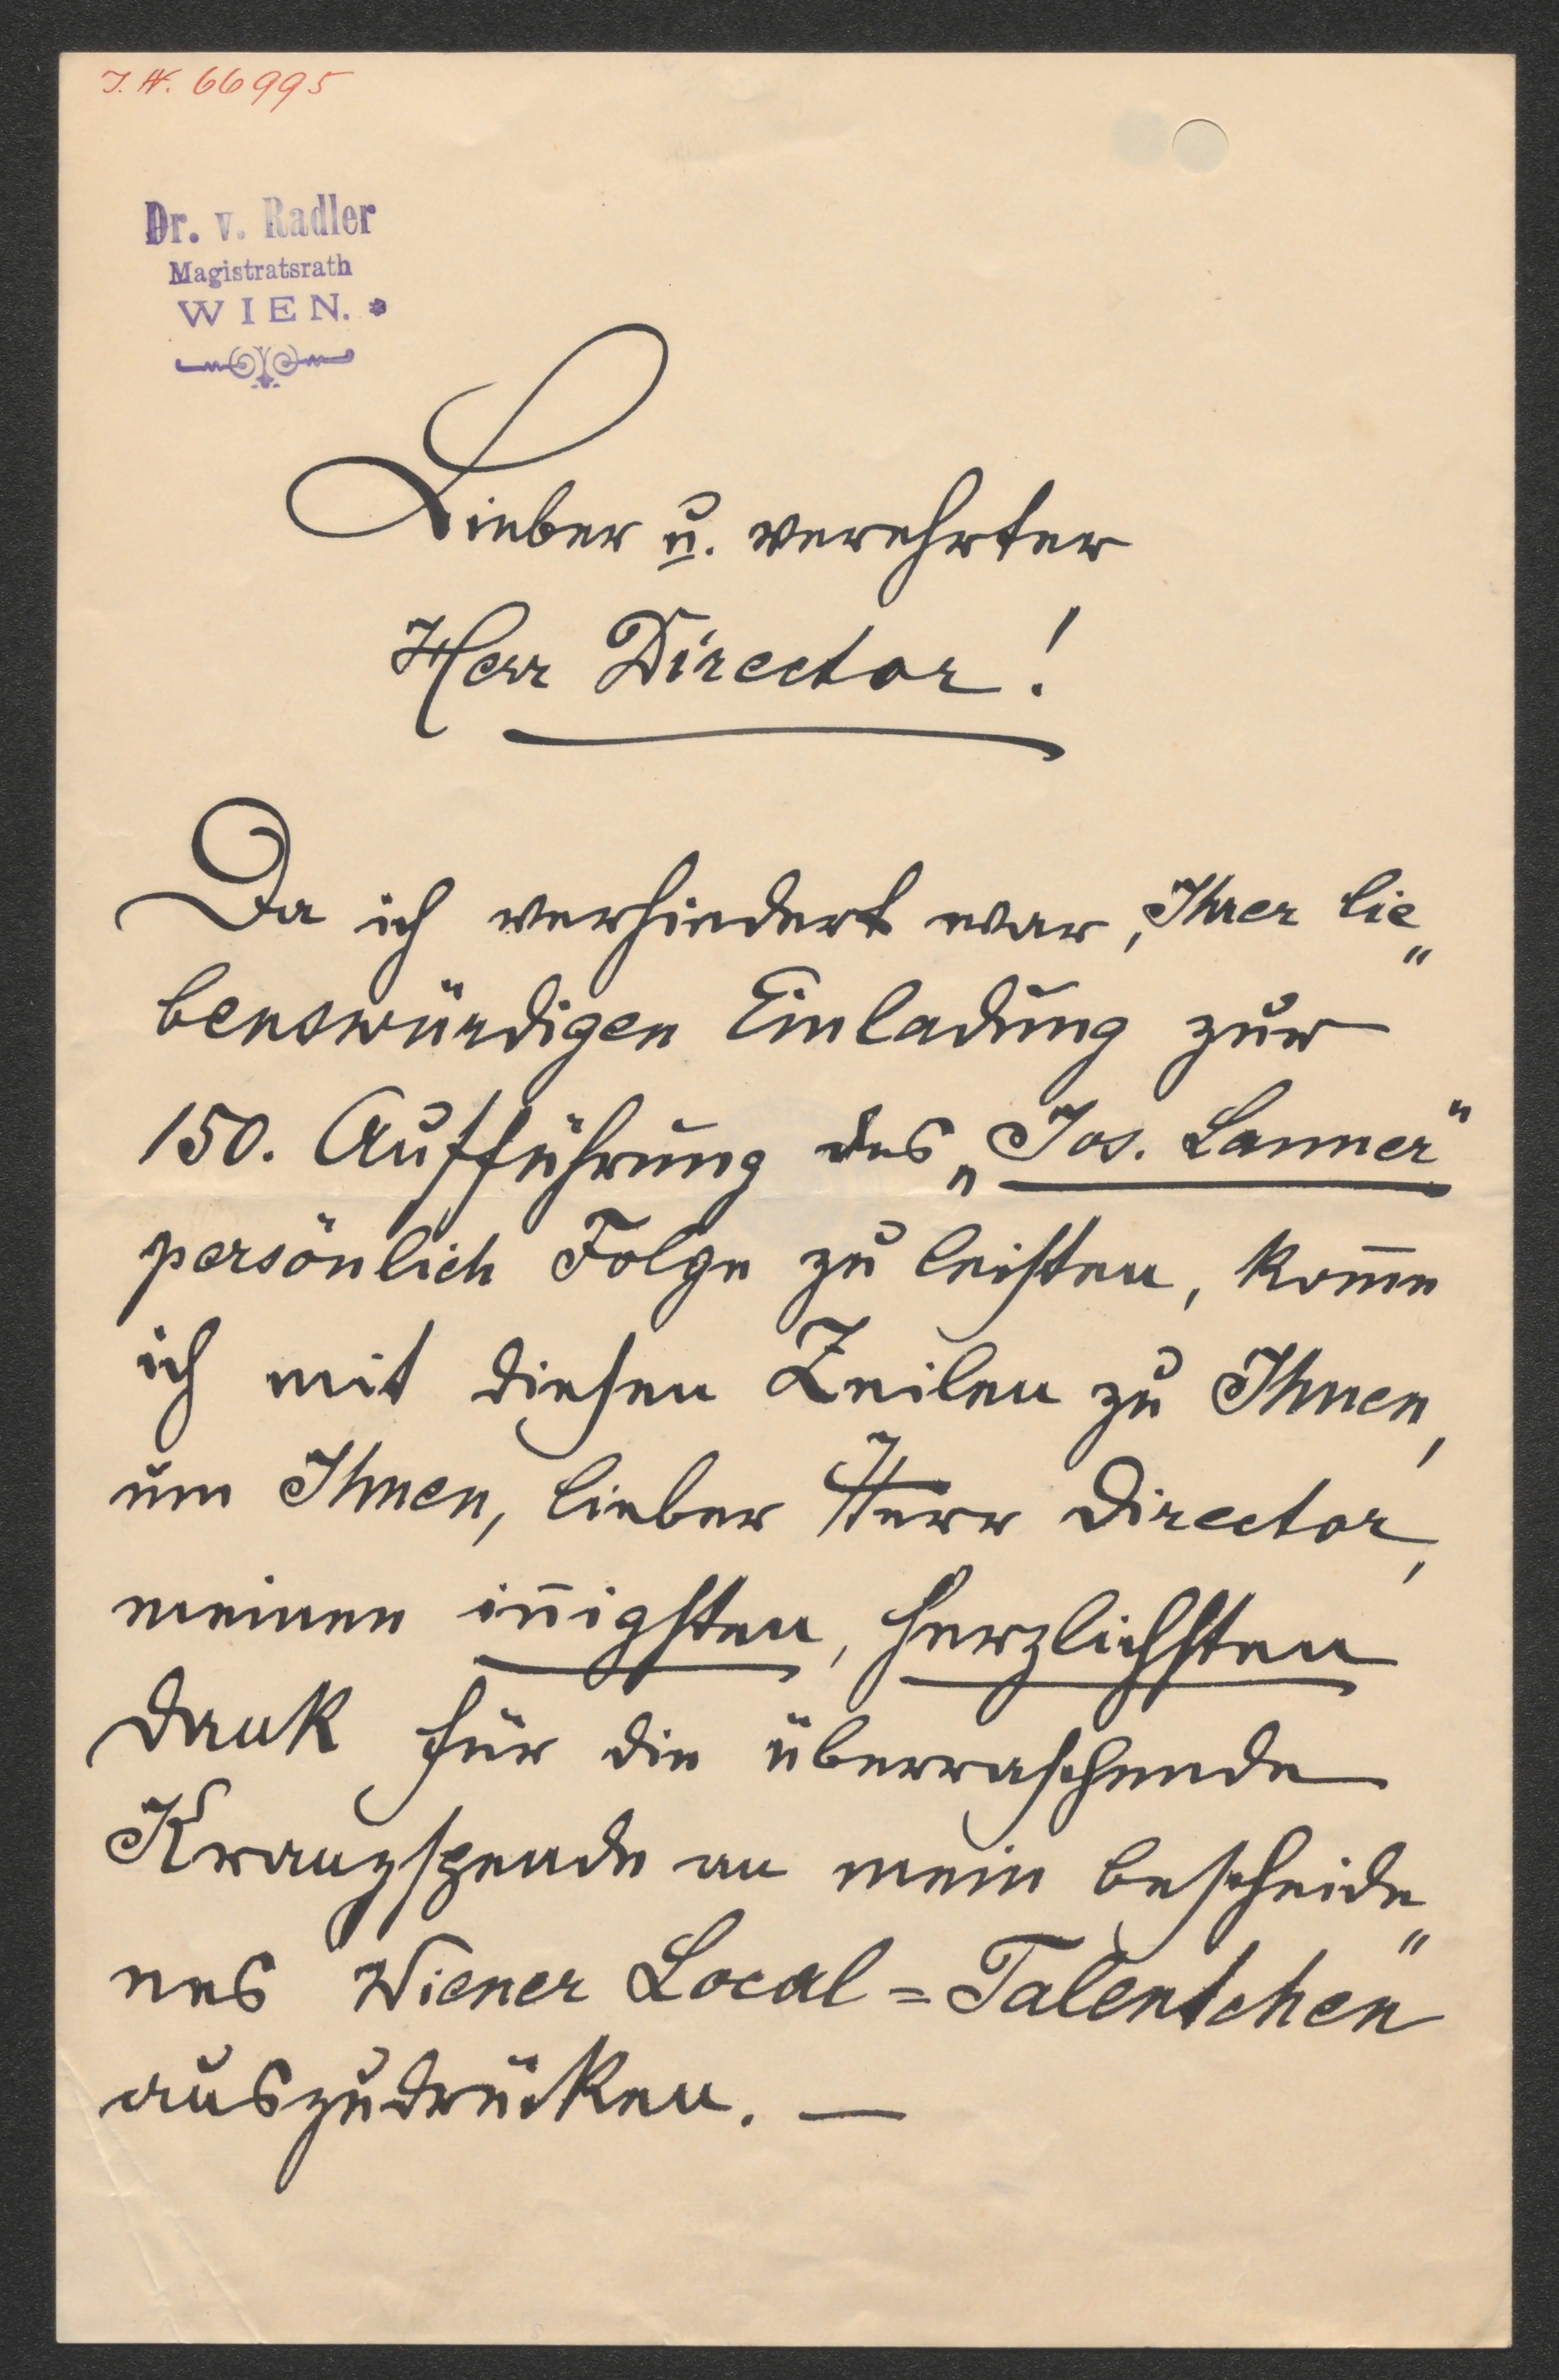 J. N. 66995
Dr. v. Radler
Magistratsrath
WIEN.
Lieber u. verehrter
Herr Director!
Da ich verhindert war, Ihrer lie„
benswürdigen Einladung zur
150. Aufführung des „Jos. Lanner“
persönlich Folge zu leisten, kom̅e
ich mit diesen Zeilen zu Ihnen,
um Ihnen, lieber Herr Director,
meinen in̅igsten, herzlichsten
Dank für die überraschende
Kranzspende an mein bescheide„
nes Wiener Local=Talentchen
auszudrücken. —